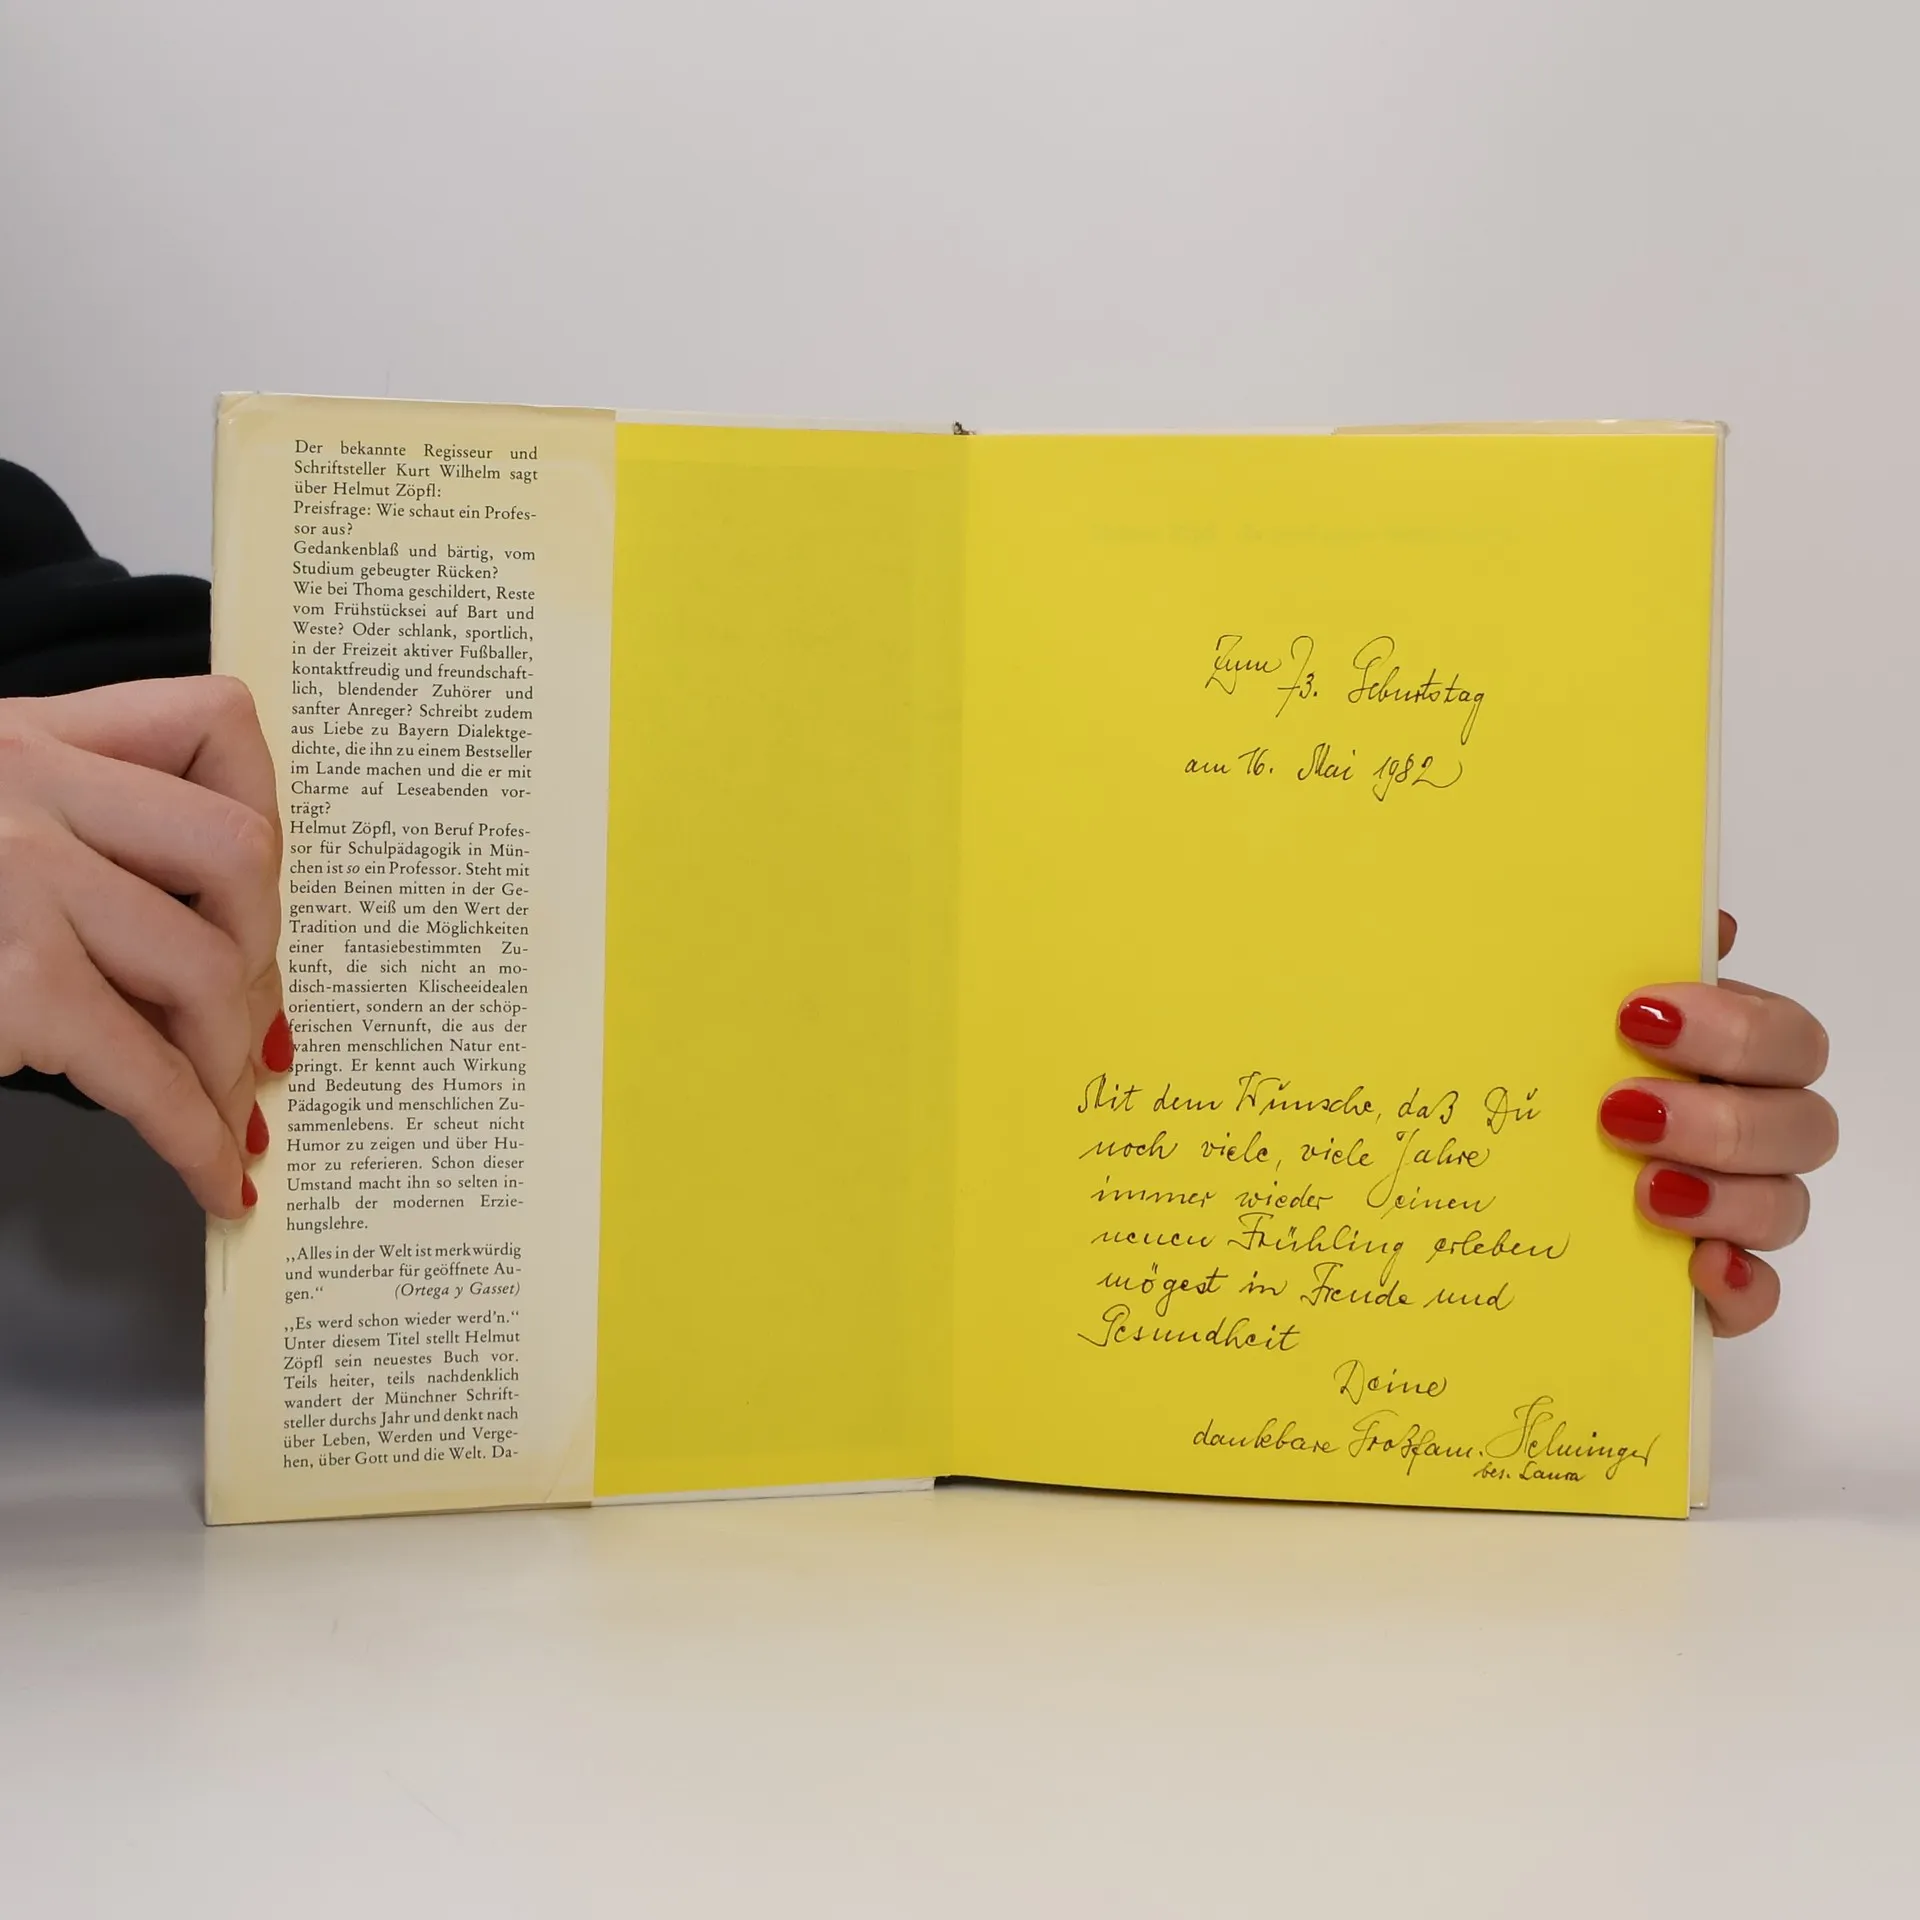 Der bekannte Regisseur und
Schriftsteller Kurt Wilhelm sagt
über Helmut Zöpfl:
Preisfrage: Wie schaut ein Profes-
sor aus?
Gedankenblaß und bärtig, vom
Studium gebeugter Rücken?
Wie bei Thoma geschildert, Reste
vom Frühstücksei auf Bart und
Weste? Oder schlank, sportlich,
in der Freizeit aktiver Fußballer,
kontaktfreudig und freundschaft-
lich, blendender Zuhörer und
sanfter Anreger? Schreibt zudem
aus Liebe zu Bayern Dialektge-
dichte, die ihn zu einem Bestseller
im Lande machen und die er mit
Charme auf Leseabenden vor-
trägt?
Helmut Zöpfl, von Beruf Profes-
sor für Schulpädagogik in Mün-
chen ist so ein Professor. Steht mit
beiden Beinen mitten in der Ge-
genwart. Weiß um den Wert der
Tradition und die Möglichkeiten
einer fantasiebestimmten Zu-
kunft, die sich nicht an mo-
disch-massierten Klischeeidealen
orientiert, sondern an der schöp-
ferischen Vernunft, die aus der
wahren menschlichen Natur ent-
springt. Er kennt auch Wirkung
und Bedeutung des Humors in
Pädagogik und menschlichen Zu-
sammenlebens. Er scheut nicht
Humor zu zeigen und über Hu-
mor zu referieren. Schon dieser
Umstand macht ihn so selten in-
nerhalb der modernen Erzie-
hungslehre.
„Alles in der Welt ist merkwürdig
und wunderbar für geöffnete Au-
gen.“ (Ortega y Gasset)
„Es werd schon wieder werd'n.“
Unter diesem Titel stellt Helmut
Zöpfl sein neuestes Buch vor.
Teils heiter, teils nachdenklich
wandert der Münchner Schrift-
steller durchs Jahr und denkt nach
über Leben, Werden und Verge-
hen, über Gott und die Welt. Da-
Zum 73. Geburtstag
am 16. Mai 1982
Mit dem Wunsche, daß Du
noch viele, viele Jahre
immer wieder einen
neuen Frühling erleben
mögest in Freude und
Gesundheit
Deine
dankbare Großfam. Helminger
bes. Laura